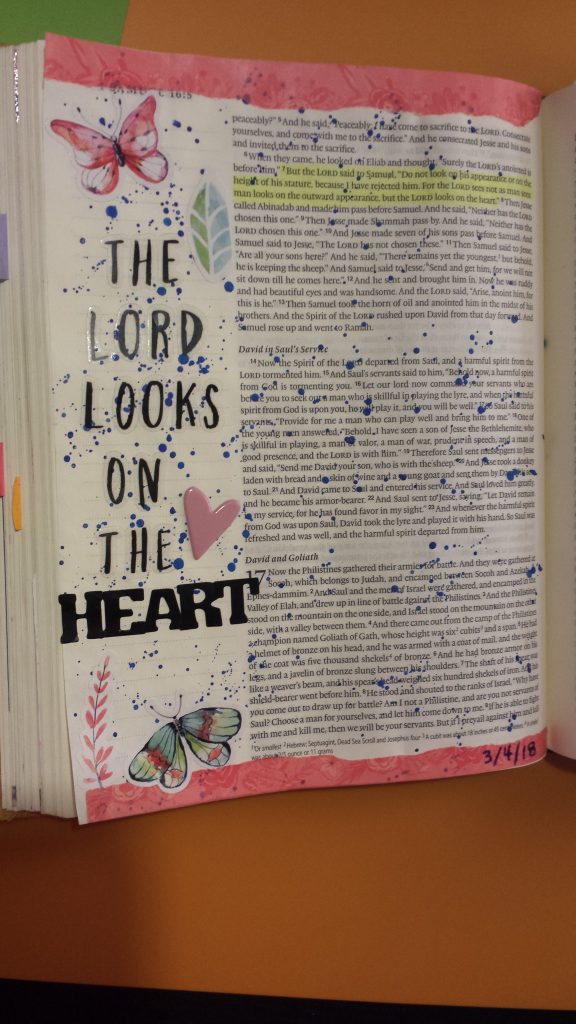 16:5
THE
LORD
LOOKS
ON
THE
HEART
peaceably?” ⁵And he said, “Peaceably; I have come to sacrifice to the LORD. Consecrate
yourselves, and come with me to the sacrifice.” And he consecrated Jesse and his sons
and invited them to the sacrifice.
⁶When they came, he looked on Eliab and thought, “Surely the LORD’s anointed is
before him.” ⁷But the LORD said to Samuel, “Do not look on his appearance or on the
height of his stature, because I have rejected him. For the LORD sees not as man sees:
man looks on the outward appearance, but the LORD looks on the heart.” ⁸Then Jesse
called Abinadab and made him pass before Samuel. And he said, “Neither has the LORD
chosen this one.” ⁹Then Jesse made Shammah pass by. And he said, “Neither has the
LORD chosen this one.” ¹⁰And Jesse made seven of his sons pass before Samuel. And
Samuel said to Jesse, “The LORD has not chosen these.” ¹¹Then Samuel said to Jesse,
“Are all your sons here?” And he said, “There remains yet the youngest,¹ but behold,
he is keeping the sheep.” And Samuel said to Jesse, “Send and get him, for we will not
sit down till he comes here.” ¹²And he sent and brought him in. Now he was ruddy
and had beautiful eyes and was handsome. And the LORD said, “Arise, anoint him, for
this is he.” ¹³Then Samuel took the horn of oil and anointed him in the midst of his
brothers. And the Spirit of the LORD rushed upon David from that day forward. And
Samuel rose up and went to Ramah.
David in Saul’s Service
¹⁴Now the Spirit of the LORD departed from Saul, and a harmful spirit from the
LORD tormented him. ¹⁵And Saul’s servants said to him, “Behold now, a harmful spirit
from God is tormenting you. ¹⁶Let our lord now command your servants who are
before you to seek out a man who is skillful in playing the lyre, and when the harmful
spirit from God is upon you, he will play it, and you will be well.” ¹⁷So Saul said to his
servants, “Provide for me a man who can play well and bring him to me.” ¹⁸One of
the young men answered, “Behold, I have seen a son of Jesse the Bethlehemite, who
is skillful in playing, a man of valor, a man of war, prudent in speech, and a man of
good presence, and the LORD is with him.” ¹⁹Therefore Saul sent messengers to Jesse
and said, “Send me David your son, who is with the sheep.” ²⁰And Jesse took a donkey
laden with bread and a skin of wine and a young goat and sent them by David his son
to Saul. ²¹And David came to Saul and entered his service. And Saul loved him greatly,
and he became his armor-bearer. ²²And Saul sent to Jesse, saying, “Let David remain
in my service, for he has found favor in my sight.” ²³And whenever the harmful spirit
from God was upon Saul, David took the lyre and played it with his hand. So Saul was
refreshed and was well, and the harmful spirit departed from him.
David and Goliath
17 Now the Philistines gathered their armies for battle. And they were gathered at
Socoh, which belongs to Judah, and encamped between Socoh and Azekah, in
Ephes-dammim. ²And Saul and the men of Israel were gathered, and encamped in the
Valley of Elah, and drew up in line of battle against the Philistines. ³And the Philistines
stood on the mountain on the one side, and Israel stood on the mountain on the other
side, with a valley between them. ⁴And there came out from the camp of the Philistines
a champion named Goliath of Gath, whose height was six² cubits³ and a span. ⁵He had
a helmet of bronze on his head, and he was armed with a coat of mail, and the weight
of the coat was five thousand shekels⁴ of bronze. ⁶And he had bronze armor on his
legs, and a javelin of bronze slung between his shoulders. ⁷The shaft of his spear was
like a weaver’s beam, and his spear’s head weighed six hundred shekels of iron. And his
shield-bearer went before him. ⁸He stood and shouted to the ranks of Israel, “Why have
you come out to draw up for battle? Am I not a Philistine, and are you not servants of
Saul? Choose a man for yourselves, and let him come down to me. ⁹If he is able to fight
with me and kill me, then we will be your servants. But if I prevail against him and kill
¹Or smallest ²Hebrew; Septuagint, Dead Sea Scroll and Josephus four ³A cubit was about 18 inches or 45 centimeters ⁴A shekel
was about 2/5 ounce or 11 grams
3/4/18